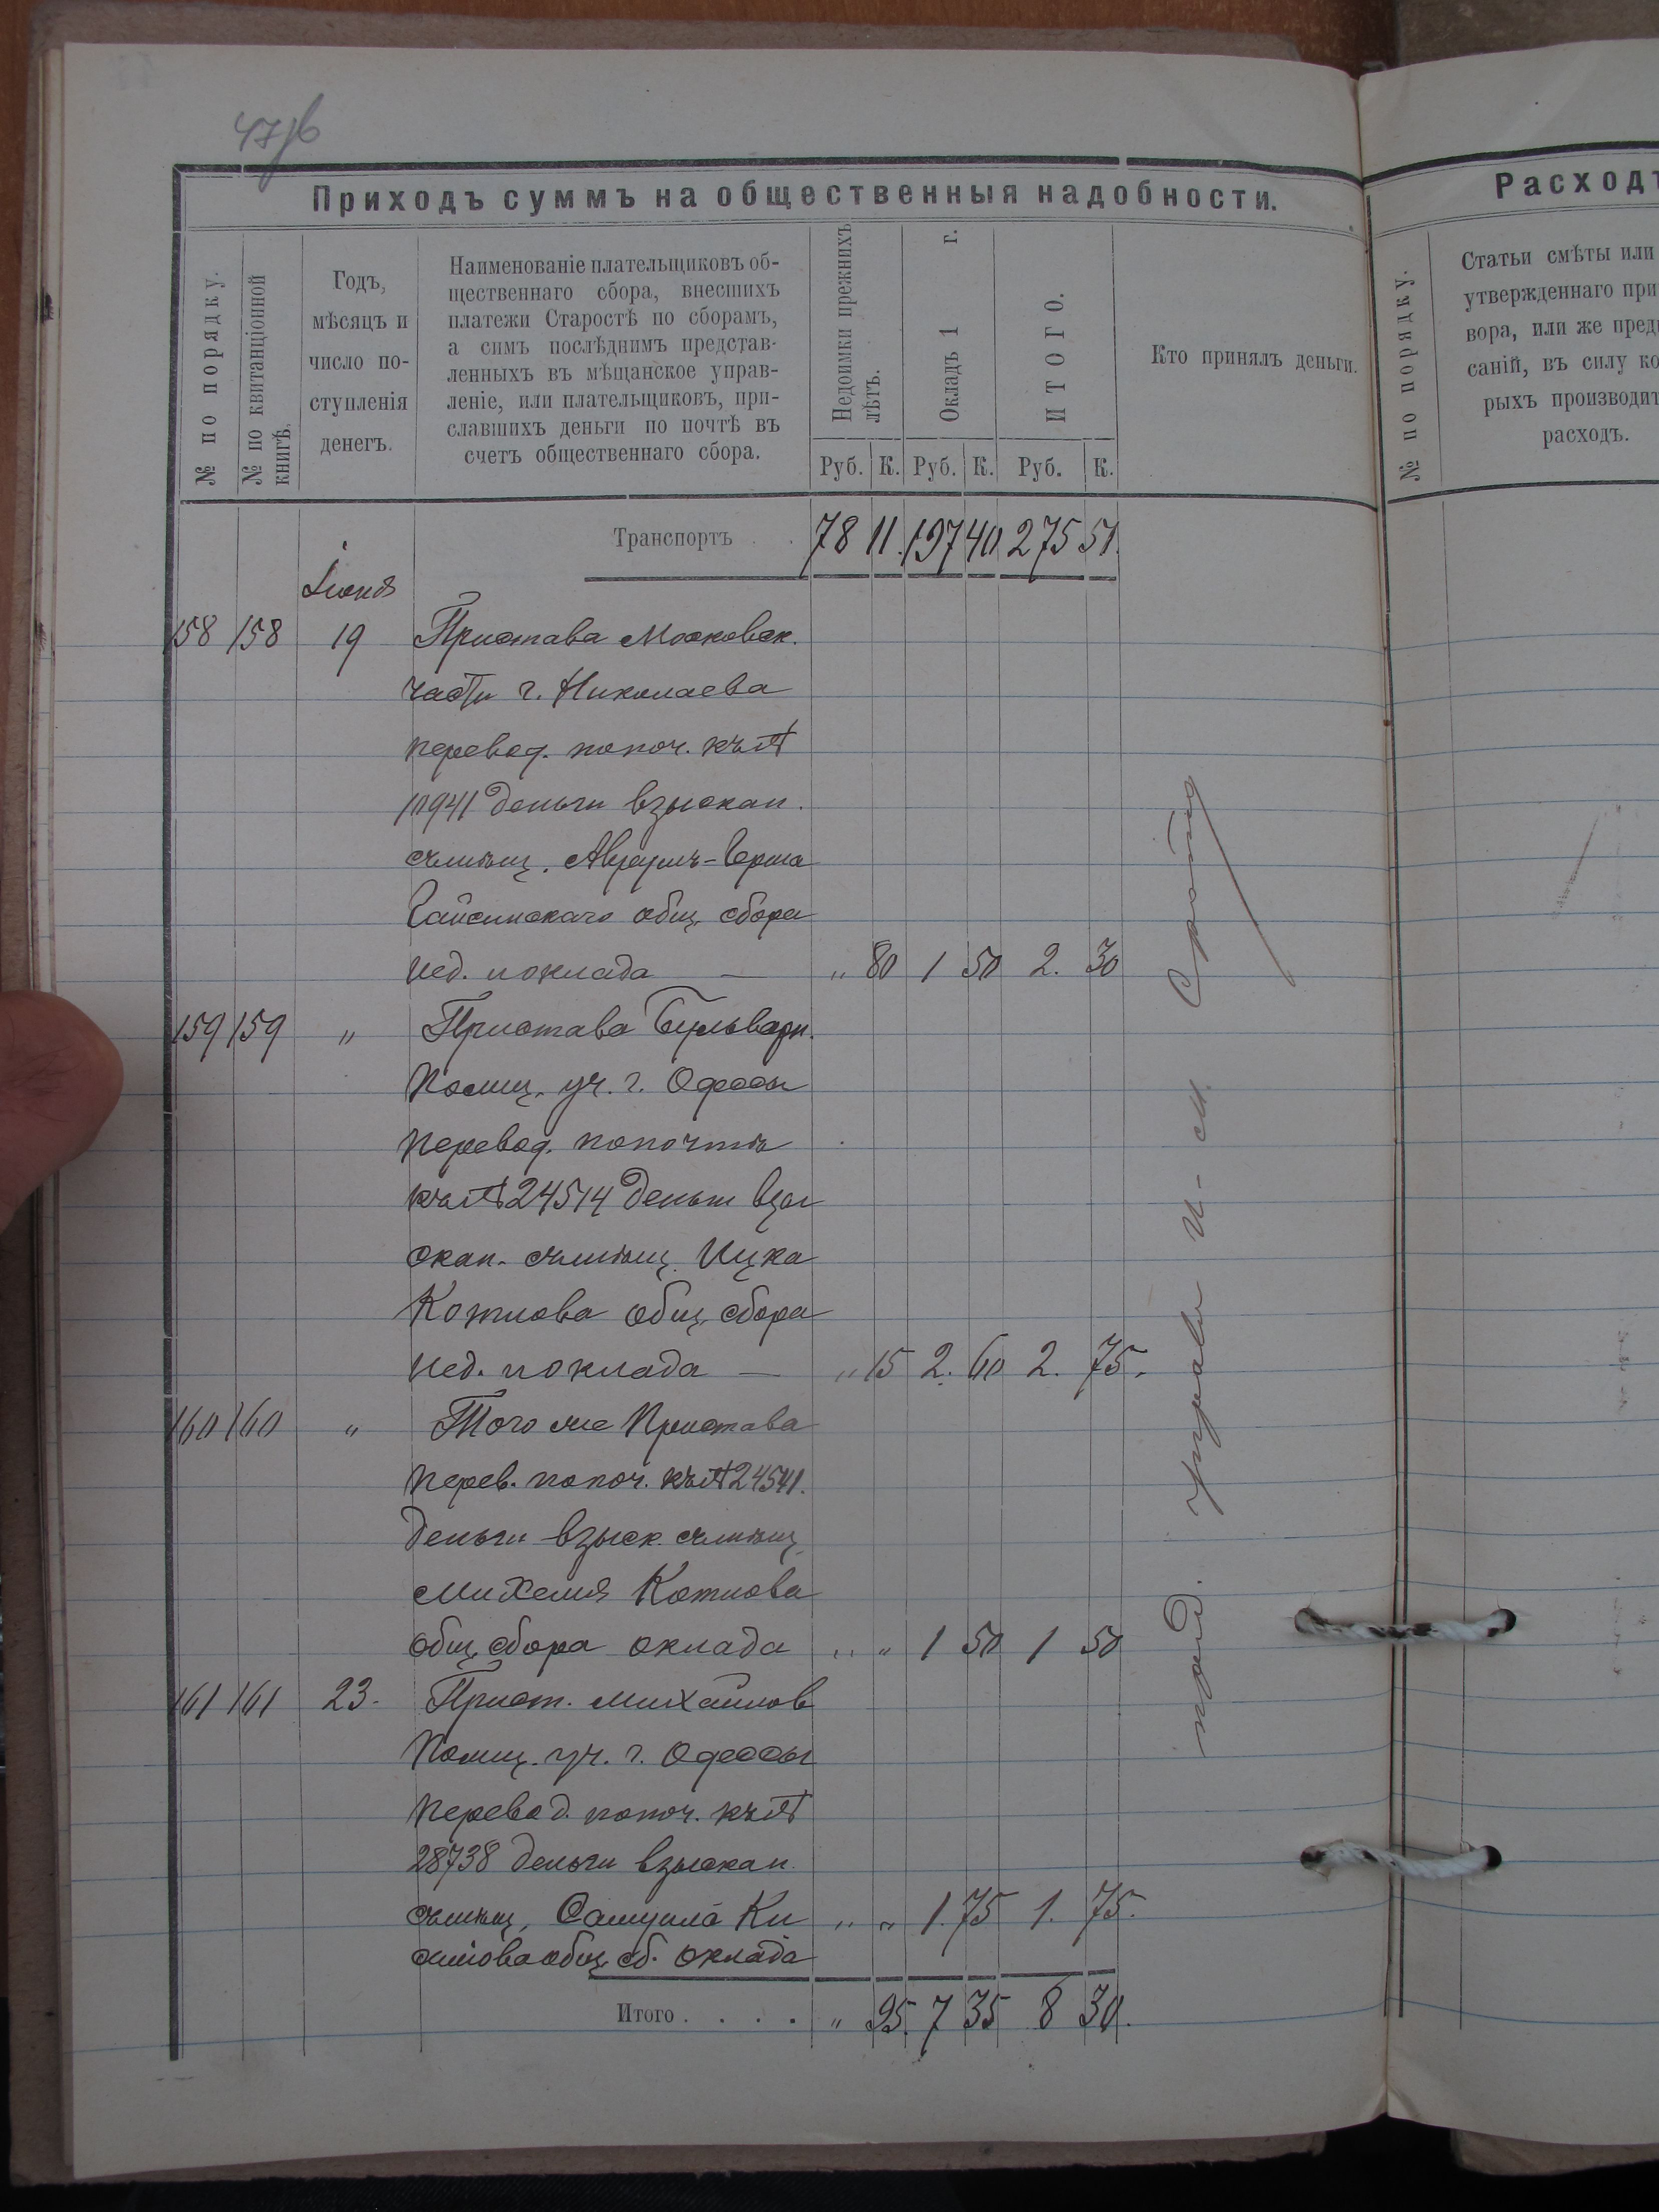 Приходъ суммъ на общественныя надобности.
№ по порядку.
№ по квитанціонной
книгѣ.
Годъ,
мѣсяцъ и
число по-
ступленія
денегъ.
Наименованіе плательщиковъ об-
щественнаго сбора, внесшихъ
платежи Старостѣ по сборамъ,
а симъ послѣднимъ представ-
ленныхъ въ мѣщанское управ-
леніе, или плательщиковъ, при-
славшихъ деньги по почтѣ въ
счетъ общественнаго сбора.
Недоимки прежнихъ
лѣтъ.
Окладъ 1 г.
ИТОГО.
Кто принялъ деньги.
Руб. К. Руб. К. Руб. К.
Транспортъ . . 78 11. 197 40 275 51.
Іюня
158 158 19 Пристава Московск.
части г. Николаева
перевод. попоч. къ №
11941 деньги взыскан.
съ мѣщ. Аврумъ-Герша
Гайсинскаго общ. сбора
нед. и оклада — " 80 1 50 2. 30
159 159 " Пристава Бульварн.
Полиц. уч. г. Одессы
перевод. попочтѣ
къ № 24514 деньги взы
скан. съ мѣщ. Ицка
Котлова общ. сбора
нед. и оклада — " 15 2. 60 2. 75.
160 160 " Того же Пристава
перев. попоч. къ № 24541.
деньги взыск. съ мѣщ.
Михеля Котлова
общ. сбора оклада " " 1 50 1 50
161 161 23. Прист. Михайлов
Полиц. уч. г. Одессы
перевод. попоч. къ №
28738 деньги взыскан.
съ мѣщ. Самуила Ки
общ. сб. оклада " " 1. 75 1. 75.
Итого . . . . " 95. 7 35 8 30.
Расходъ
№ по порядку.
Статьи смѣты или
утвержденнаго при
вора, или же пред
саній, въ силу ко
рыхъ производит
расходъ.